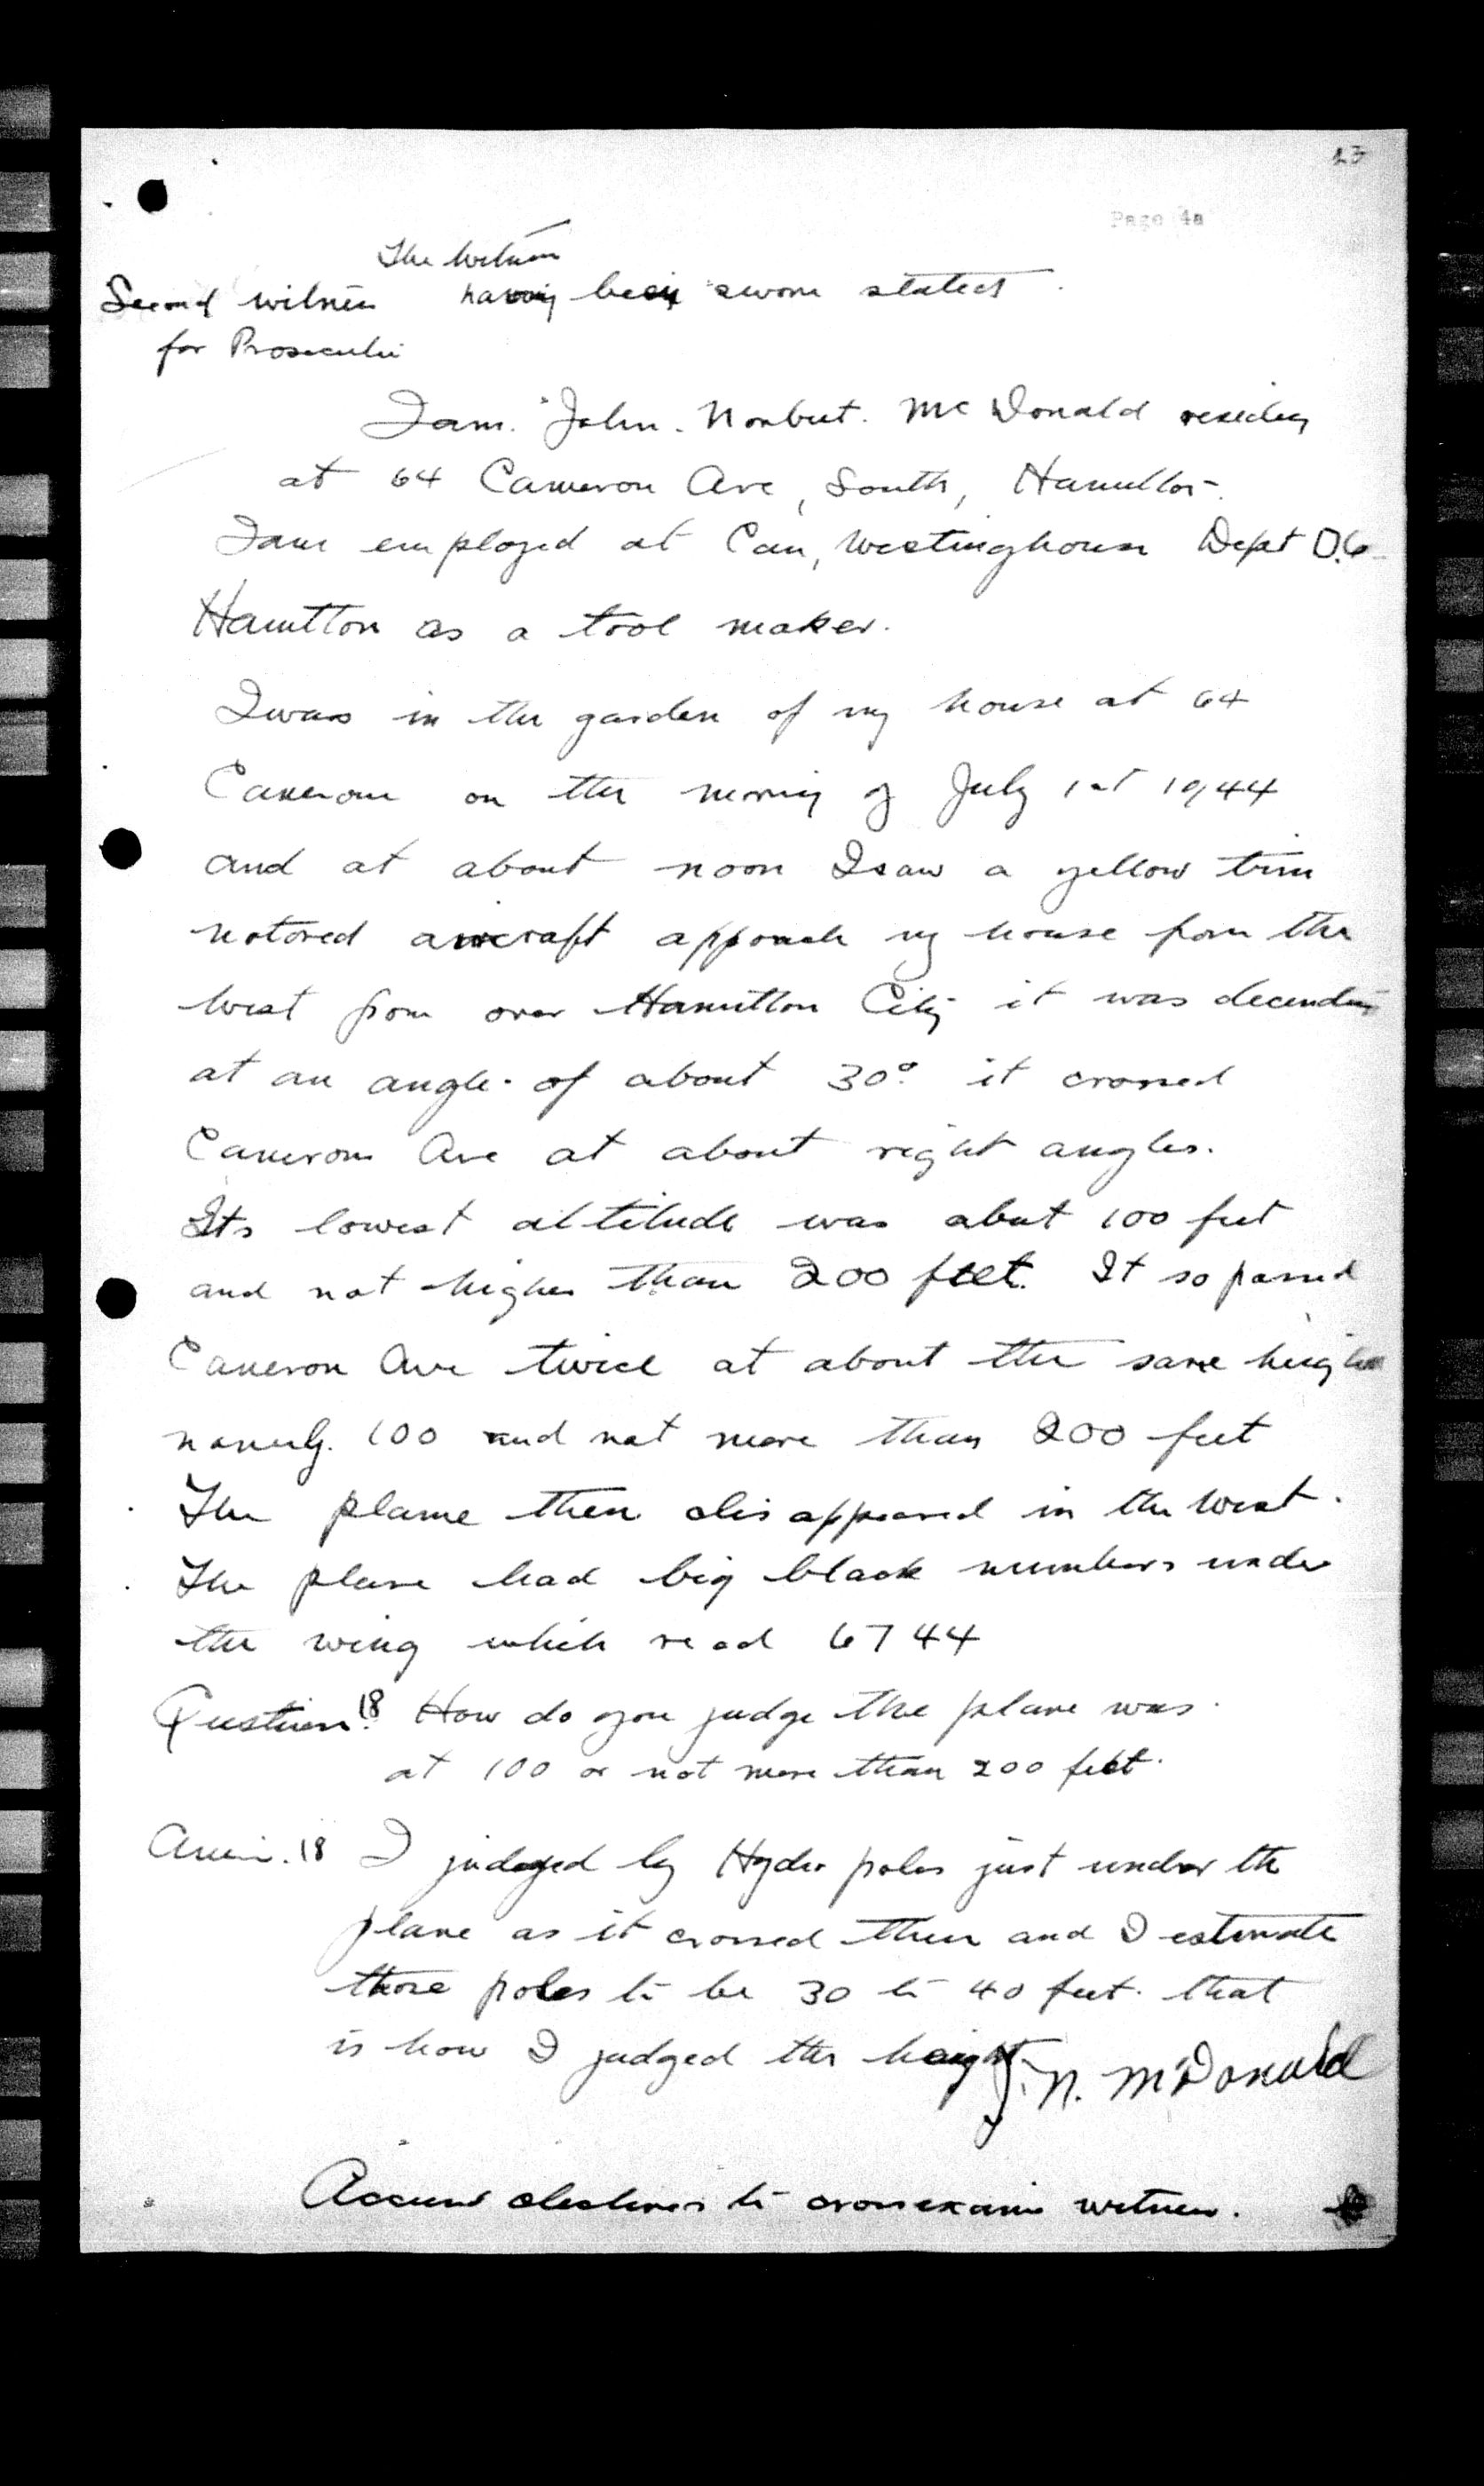 23
Page 4a
The Witness
Second witness having been sworn stated
for Prosecution
I am John. Norbert. McDonald residing
at 64 Cameron Ave, South, Hamilton.
I am employed at Can, Westinghouse Dept D.6
Hamilton as a tool maker.
I was in the garden of my house at 64
Cameron on the morning of July 1st 1944
and at about noon I saw a yellow twin
motored aircraft approach my house from the
West from over Hamilton City it was decending
at an angle of about 30° it crossed
Cameron Ave at about right angles.
Its lowest altitude was about 100 feet
and not higher than 200 feet. It so passed
Cameron Ave twice at about the same height
namely. 100 and not more than 200 feet
The plane then disappeared in the West.
The plane had big black numbers under
the wing which read 6744
Question 18 How do you judge the plane was
at 100 or not more than 200 feet.
Answ. 18 I judged by Hydro poles just under the
plane as it crossed them and I estimate
those poles to be 30 to 40 feet. that
is how I judged the height.
J. N. McDonald
Accused declines to cross exam witness.